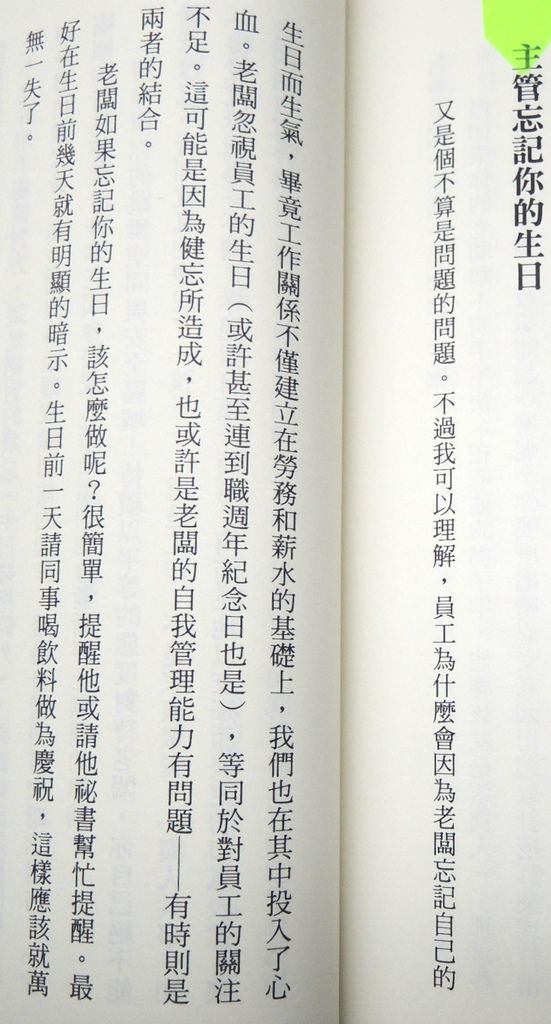 主管忘記你的生日
又是個不算是問題的問題。不過我可以理解，員工為什麼會因為老闆忘記自己的
生日而生氣，畢竟工作關係不僅建立在勞務和薪水的基礎上，我們也在其中投入了心
血。老闆忽視員工的生日（或許甚至連到職週年紀念日也是），等同於對員工的關注
不足。這可能是因為健忘所造成，也或許是老闆的自我管理能力有問題——有時則是
兩者的結合。
老闆如果忘記你的生日，該怎麼做呢？很簡單，提醒他或請他祕書幫忙提醒。最
好在生日前幾天就有明顯的暗示。生日前一天請同事喝飲料做為慶祝，這樣應該就萬
無一失了。